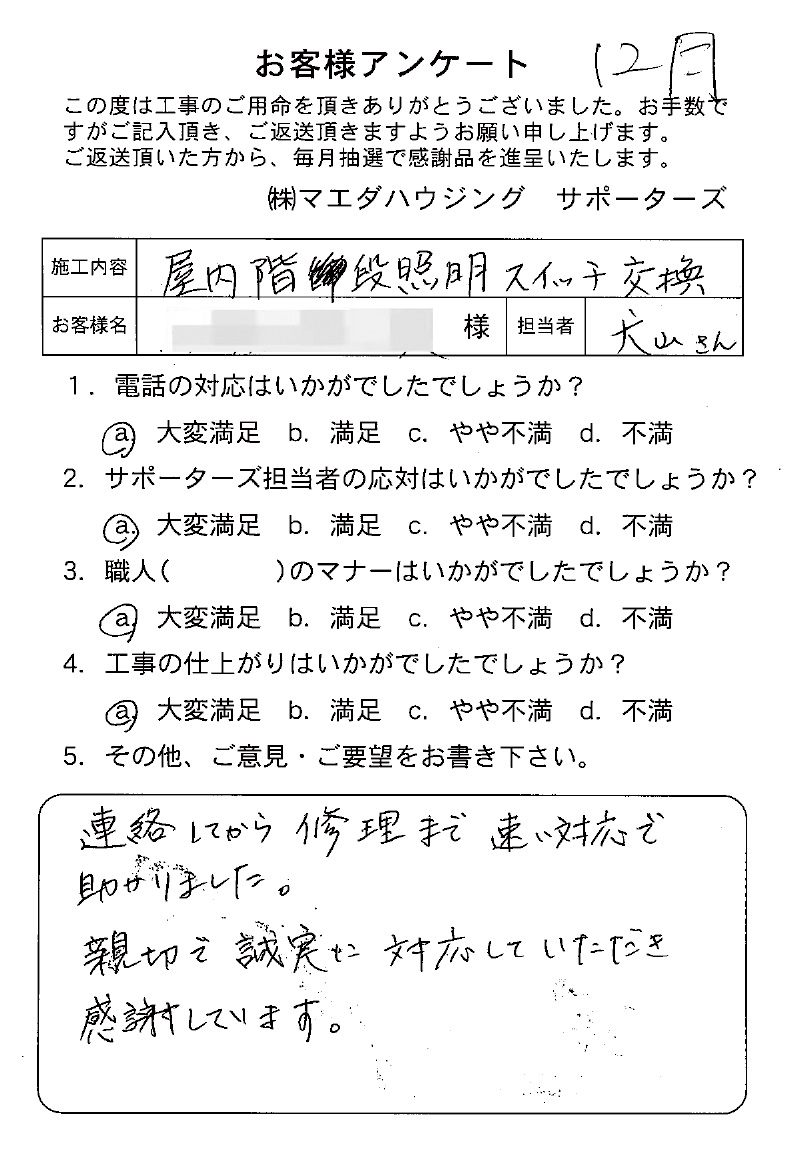 お客様アンケート 12月
この度は工事のご用命を頂きありがとうございました。お手数で
すがご記入頂き、ご返送頂きますようお願い申し上げます。
ご返送頂いた方から、毎月抽選で感謝品を進呈いたします。
㈱マエダハウジング サポーターズ
施工内容 屋内階段照明スイッチ交換
お客様名 様 担当者 犬山さん
1. 電話の対応はいかがでしたでしょうか?
a 大変満足 b. 満足 c. やや不満 d. 不満
2. サポーターズ担当者の応対はいかがでしたでしょうか?
a. 大変満足 b. 満足 c. やや不満 d. 不満
3. 職人( )のマナーはいかがでしたでしょうか?
a 大変満足 b. 満足 c. やや不満 d. 不満
4. 工事の仕上がりはいかがでしたでしょうか?
a 大変満足 b. 満足 c. やや不満 d. 不満
5. その他、ご意見・ご要望をお書き下さい。
連絡してから修理まで速い対応で
助かりました。
親切で誠実に対応していただき
感謝しています。